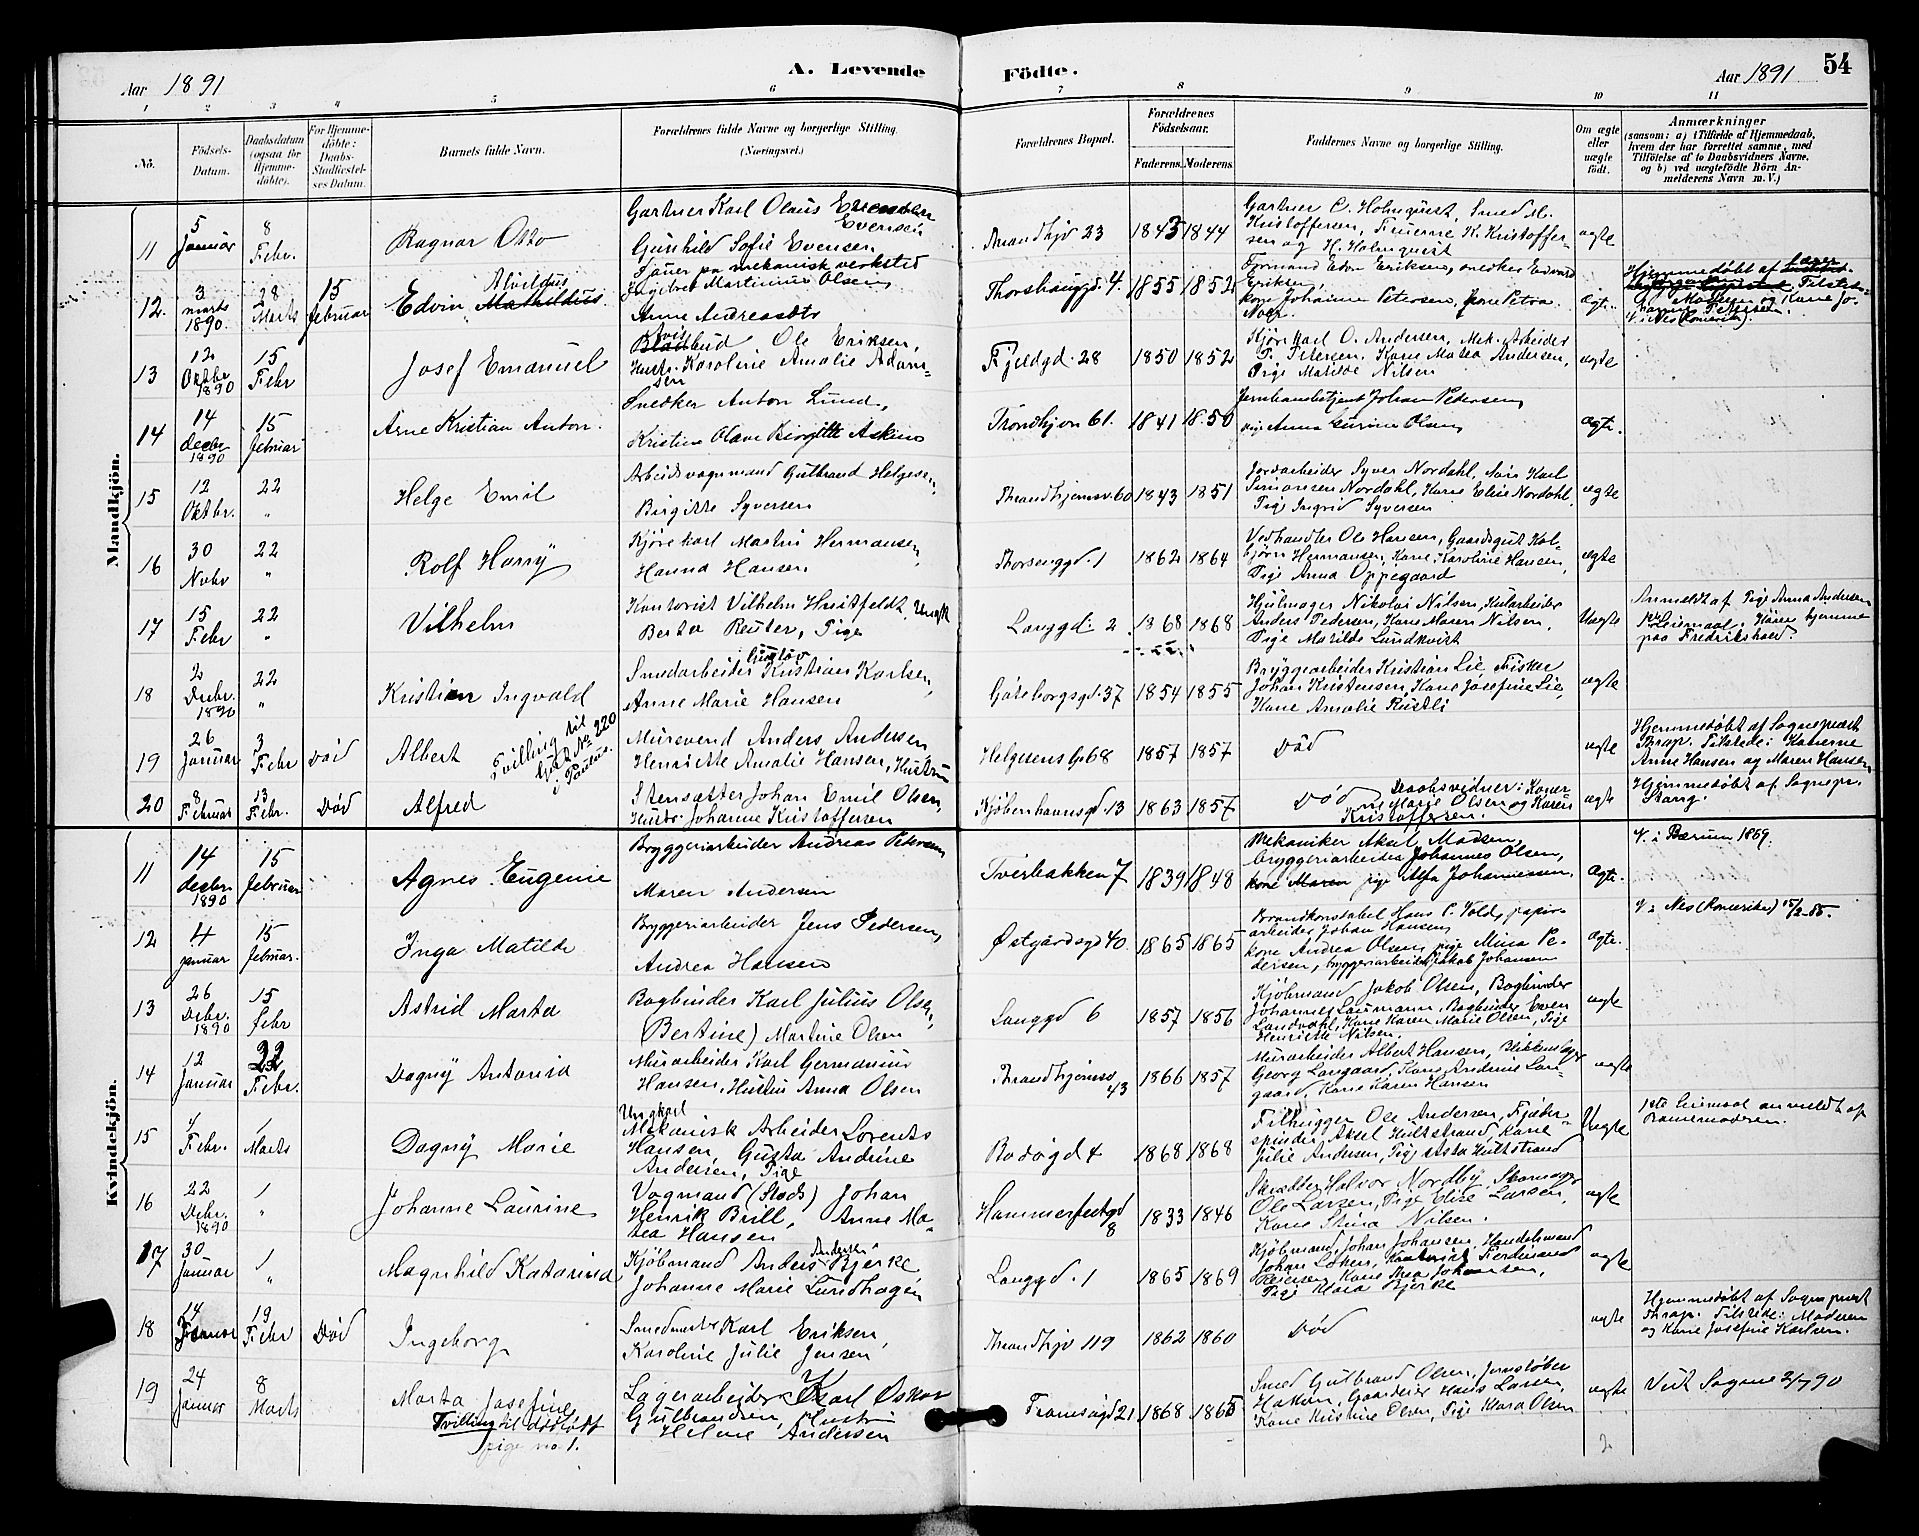 Aar 1891
A. Levende Födte.
Aar 1891
54
1 2 3 4 5 6 7 8 9 10 11
No.
Födsels-Datum.
Daabsdatum (ogsaa for Hjemme-döbte).
For Hjemme-döbte: Daabs-Stadfæstel-ses Datum.
Barnets fulde Navn.
Forældrenes fulde Navne og borgerlige Stilling.
(Næringsvei.)
Forældrenes Bopæl.
Forældrenes Födselsaar.
Faderens. Moderens.
Faddernes Navne og borgerlige Stilling.
Om ægte eller uægte födt.
Anmærkninger
(saasom: a) i Tilfælde af Hjemmedaab,
hvem der har forrettet samme, med
Tilföielse af to Daabsvidners Navne,
og b) ved uægtefödte Börn An-
melderens Navn m. V.)
Mandkjön.
11
5 Januar
8 Febr.
Ragnar Otto
Gartner Karl Olaus Evensen
Gunhild Sofie Evensen
Thrandhjv 23
1843 1844
Gartner C. Holmquist, Smed M.
Kristoffersen, Fruerne K. Kristoffer-
sen og H. Holmquist
ægte
12.
3 marts 1890.
28 Marts
15 februar
Edvin Mathildus Alvildus
Fauer pa mekanisk verksted
Ingebret Martinius Olsen,
Anne Andreasdtr
Thorshauggd. 4.
1855 1852
Formand Edv. Eriksen, snedker Edvard
Eriksen,
kone Johanne Petersen, kone Petra
ægte.
Hjemmedøbt af
Moderen og Kone Jo-
hanne Petersen.
V. i Nes (Romerike).
13
12 Oktbr 1890
15 Febr
Josef Emanuel
Bladbud Ole Eriksen,
Hustr. Karoline Amalie Adam-
sen
Fjeldgd. 28
1850 1852
Kjørekarl O. Andersen, Mek. Arbeider
P. Petersen, Kone Matea Andersen,
Pige Matilde Nilsen
ægte
14
14 Decbr 1890
15 februar
Arne Kristian Anton.
Snedker Anton Lund,
Kristine Olava Birgitte Askim
Trondhjvn 61.
1841 1850
Jernbanebetjent Johan Pedersen,
pige Anna Gurine Olsen,
ægte.
15
12 Oktbr.
22 "
Helge Emil
Arbeidsvognmand Gulbrand Helgesen,
Birgitte Syversen
Thrandhjemsv. 60
1843 1851
Jordarbeider Syver Nordahl, Karl
Simonsen Nordahl, Kone Elise Nordahl,
Pige Ingrid Syversen
ægte
16
30 Novbr
22 "
Rolf Harry
Kjørekarl Martin Hermansen,
Hanna Hansen
Thorshauggd. 1
1862 1864
Vedhandler Ole Hansen, Gaardsgut Kol-
bjørn Hermansen, Kone Karoline Hansen,
Pige Anna Oppegaard
ægte
17
15 Febr
22 "
Vilhelm
Kontorist Vilhelm Huitfeldt, Ungk
Berta Reuter, Pige
Langgd. 2
1868 1868
Hjulmager Nikolai Nilsen, Kularbeider
Anders Pedersen, Kone Maren Nilsen,
Pige Matilde Lundkvist
Uægte
Anmeldt af Pige Anna Andersen
1ste Leiermaal. Hører hjemme
paa Fredrikshald
18
2 Decbr. 1890
22 "
Kristian Ingvald
Smedarbeider Gustav Kristian Karlsen,
Anne Marie Hansen
Göteborgsgd. 37
1854 1855
Bryggearbeider Kristian Lie, Fisker
Johan Kristensen, Kone Josefine Lie,
Kone Amalie Rustli
ægte
19
26 Januar
3 Febr
Død
Albert
Tvilling til
No 220
i Paulus.
Muresvend Anders Andersen
Henriette Amalie Hansen, Hustru
Helgesens G. 68
1857 1857
Død
ægte
Hjemmedøbt af Sogneprest
Thrap. Tilstede: Konerne
Anne Hansen og Maren Hansen
20
8 Februar
13 Febr.
Død
Alfred
Stensætter Johan Emil Olsen,
Hustr. Johanne Kristoffersen
Kjøbenhavnsgd 13
1863 1857
Død
Daabsvidner: Koner-
ne Marie Olsen og Karen
Kristoffersen.
ægte
Hjemmedøbt af Sognepr.
Stang.
Kvindekjön.
11
14 decbr 1890
15 februar
Agnes Eugenie
Bryggeriarbeider Andreas Petersen,
Maren Andersen
Tverbakken 7
1839 1848
Mekaniker Aksel Madsen,
bryggeriarbeider Johannes Olsen,
kone Maren pige Alfa Johannessen.
Ægte.
V. i Bærum 1869.
12
4 januar
15 februar.
Inga Matilde
Bryggeriarbeider Jens Pedersen,
Andrea Hansen
Østgårdsgd 40
1865 1865
Brandkonstabel Hans P. Vold, papir-
arbeider Johan Hansen,
kone Andrea Olsen, pige Mina Pe-
dersen, bryggeriarbeider Jakob Johansen
Ægte.
V. i Nes (Romerike) 15/2 85.
13
26 Decbr. 1890
15 febr
Astrid Marta
Bogbinder Karl Julius Olsen,
(Bertine) Martine Olsen
Langgd 6
1857 1856
Kjøbmand Jakob Olsen, Bogbinder
Johannes Laumann, Bogbinder Even
Landvahl, Kone Karen Marie Olsen, Pige
Henriette Nilsen
ægte
14
12 Januar
22 Febr.
Dagny Antonia
Murarbeider Karl Germanius
Hansen, Hustru Anna Olsen
Thrandhjemsv 43
1866 1857
Murarbeider Albert Hansen, Blikkenslager
Georg Langaard, Kone Andrine Lan-
gaard, Kone Karen Hansen
ægte
15
4 Febr.
1 Marts
Dagny Marie
Ungkarl
Mekanisk Arbeider Lorents
Hansen, Gusta Andrine
Andersen, Pige
Bodøgd 4
1868 1868
Filhugger Ole Andersen, Fjæder-
spinder Aksel Hultstrand, Kone
Julie Andersen, Pige Asta Hultstrand
Uægte
1ste Leiermaal anmeldt af
Barnemoderen.
16
22 Decbr. 1890
1 "
Johanne Laurine
Vognmand (Stads) Johan
Henrik Brill, Anne Ma-
tea Hansen
Hammerfestgd 8
1833 1846
Skrædder Halvor Nordby, Skomager
Ole Larsen, Pige Elise Larsen,
Kone Stina Nilsen.
ægte
17
30 Januar
1 "
Magnhild Katarina
Kjøbmand Anders Andersen Bjerke
Johanne Marie Lundhagen
Langgd. 1
1865 1869
Kjøbmand Johan Johansen, Handelsmand
Johan Løken, Kontorist Ferdinand
Pedersen, Kone Thea Johansen,
Pige Klara Bjerke
ægte
18
14 Januar
19 Febr
Død
Ingeborg
Smedmester Karl Eriksen,
Karoline Julie Jensen
Thrandhjv 119
1862 1860
Død
ægte
Hjemmedøbt af Sogneprest
Thrap. Tilstede: Moderen
og Kone Josefine Karlsen.
19
24 Januar
8 Marts
Marta Josefine
Tvilling til dødfødt
pige no 1.
Lagerarbeider Karl Oskar
Gulbrandsen, Hustru
Helene Andersen
Tromsögd 21
1868 1865
Smed Gulbrand Olsen, Jernstøber
Hakon, Gaardeier Hans Larsen,
Kone Kristine Olsen, Pige Klara Olsen
ægte
Viet Sogne 2/7 90
2